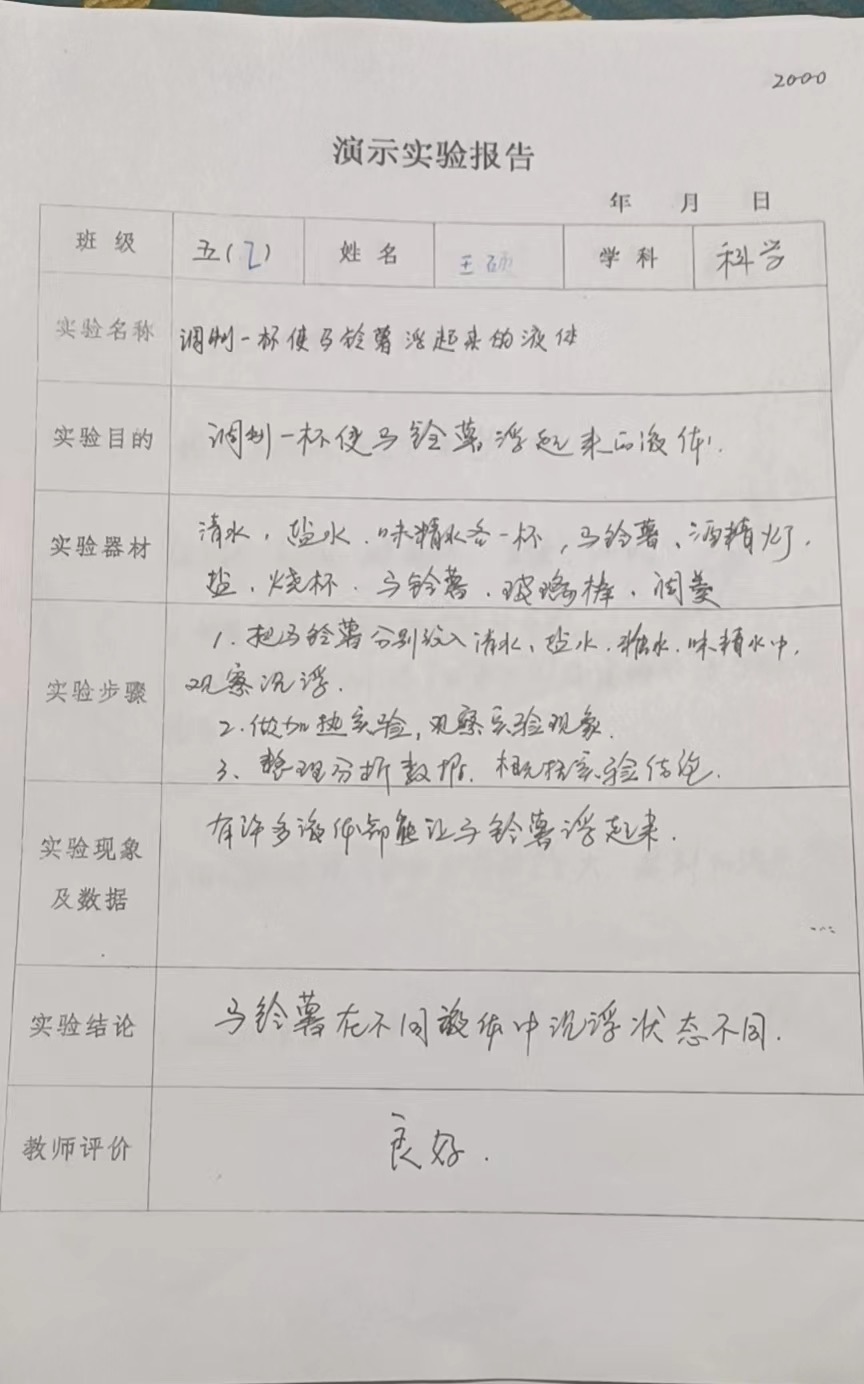 2000
演示实验报告
年 月 日
班级 五(乙) 姓名 王硕 学科 科学
实验名称 调制一杯使马铃薯浮起来的液体
实验目的 调制一杯使马铃薯浮起来的液体.
实验器材 清水,盐水.味精水各一杯,马铃薯、酒精灯.
盐.烧杯.马铃薯.玻璃棒.调羹
实验步骤 1.把马铃薯分别放入清水、盐水.糖水.味精水中.
观察沉浮.
2.做加热实验,观察实验现象.
3、整理分析数据.概括实验结论.
实验现象
及数据
有许多液体都能让马铃薯浮起来.
实验结论 马铃薯在不同液体中沉浮状态不同.
教师评价 良好.